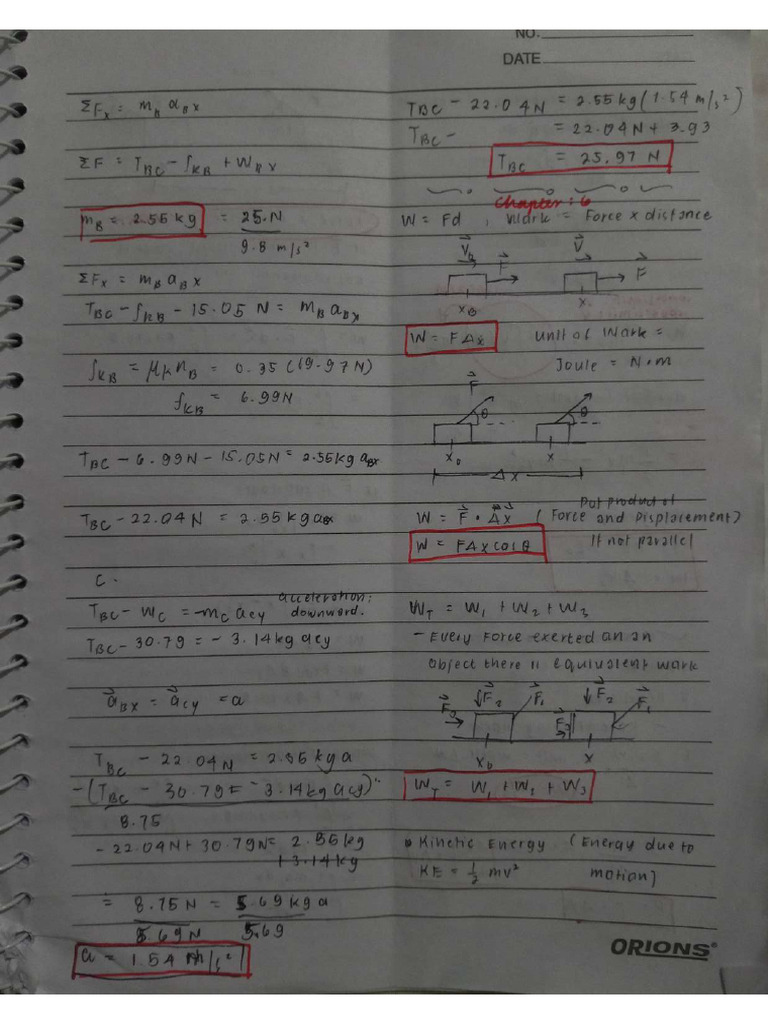 NO.
DATE
ΣFx = mB aBx
ΣF = TBC - fKB + WBx
mB = 2.55 kg = 25.N
9.8 m/s²
ΣFx = mB aBx
TBC - fKB - 15.05 N = mB aBx
fKB = μk nB = 0.35 (19.97N)
fKB = 6.99N
TBC - 6.99N - 15.05N = 2.55kg aBx
TBC - 22.04N = 2.55kg aBx
C.
TBC - WC = -mC aCy acceleration: downward.
TBC - 30.79 = - 3.14kg aCy
a⃗Bx = a⃗Cy = a
TBC - 22.04N = 2.55kg a
-(TBC - 30.79 = -3.14kg aCy)
8.75
-22.04N + 30.79N = 2.55kg
+ 3.14kg
= 8.75N = 5.69kg a
5.69N 5.69
a = 1.54 m/s²
TBC - 22.04N = 2.55kg (1.54 m/s²)
TBC - = 22.04N + 3.93
TBC = 25.97 N
Chapter: 6
W = Fd , Work = Force x distance
V⃗0 F⃗ V⃗ F⃗
x0 x
W = FΔx Unit of Work =
Joule = N•m
F⃗
θ θ
x0 x
Δx
Dot product of
W = F⃗ • Δx⃗ (Force and Displacement)
W = FΔx cos θ If not parallel
WT = W1 + W2 + W3
- Every Force exerted on an
object there is equivalent work
F⃗3 F⃗2 F⃗1 F⃗3 F⃗2 F⃗1
x0 x
WT = W1 + W2 + W3
• Kinetic Energy (Energy due to
KE = 1/2 mv² motion)
ORIONS®